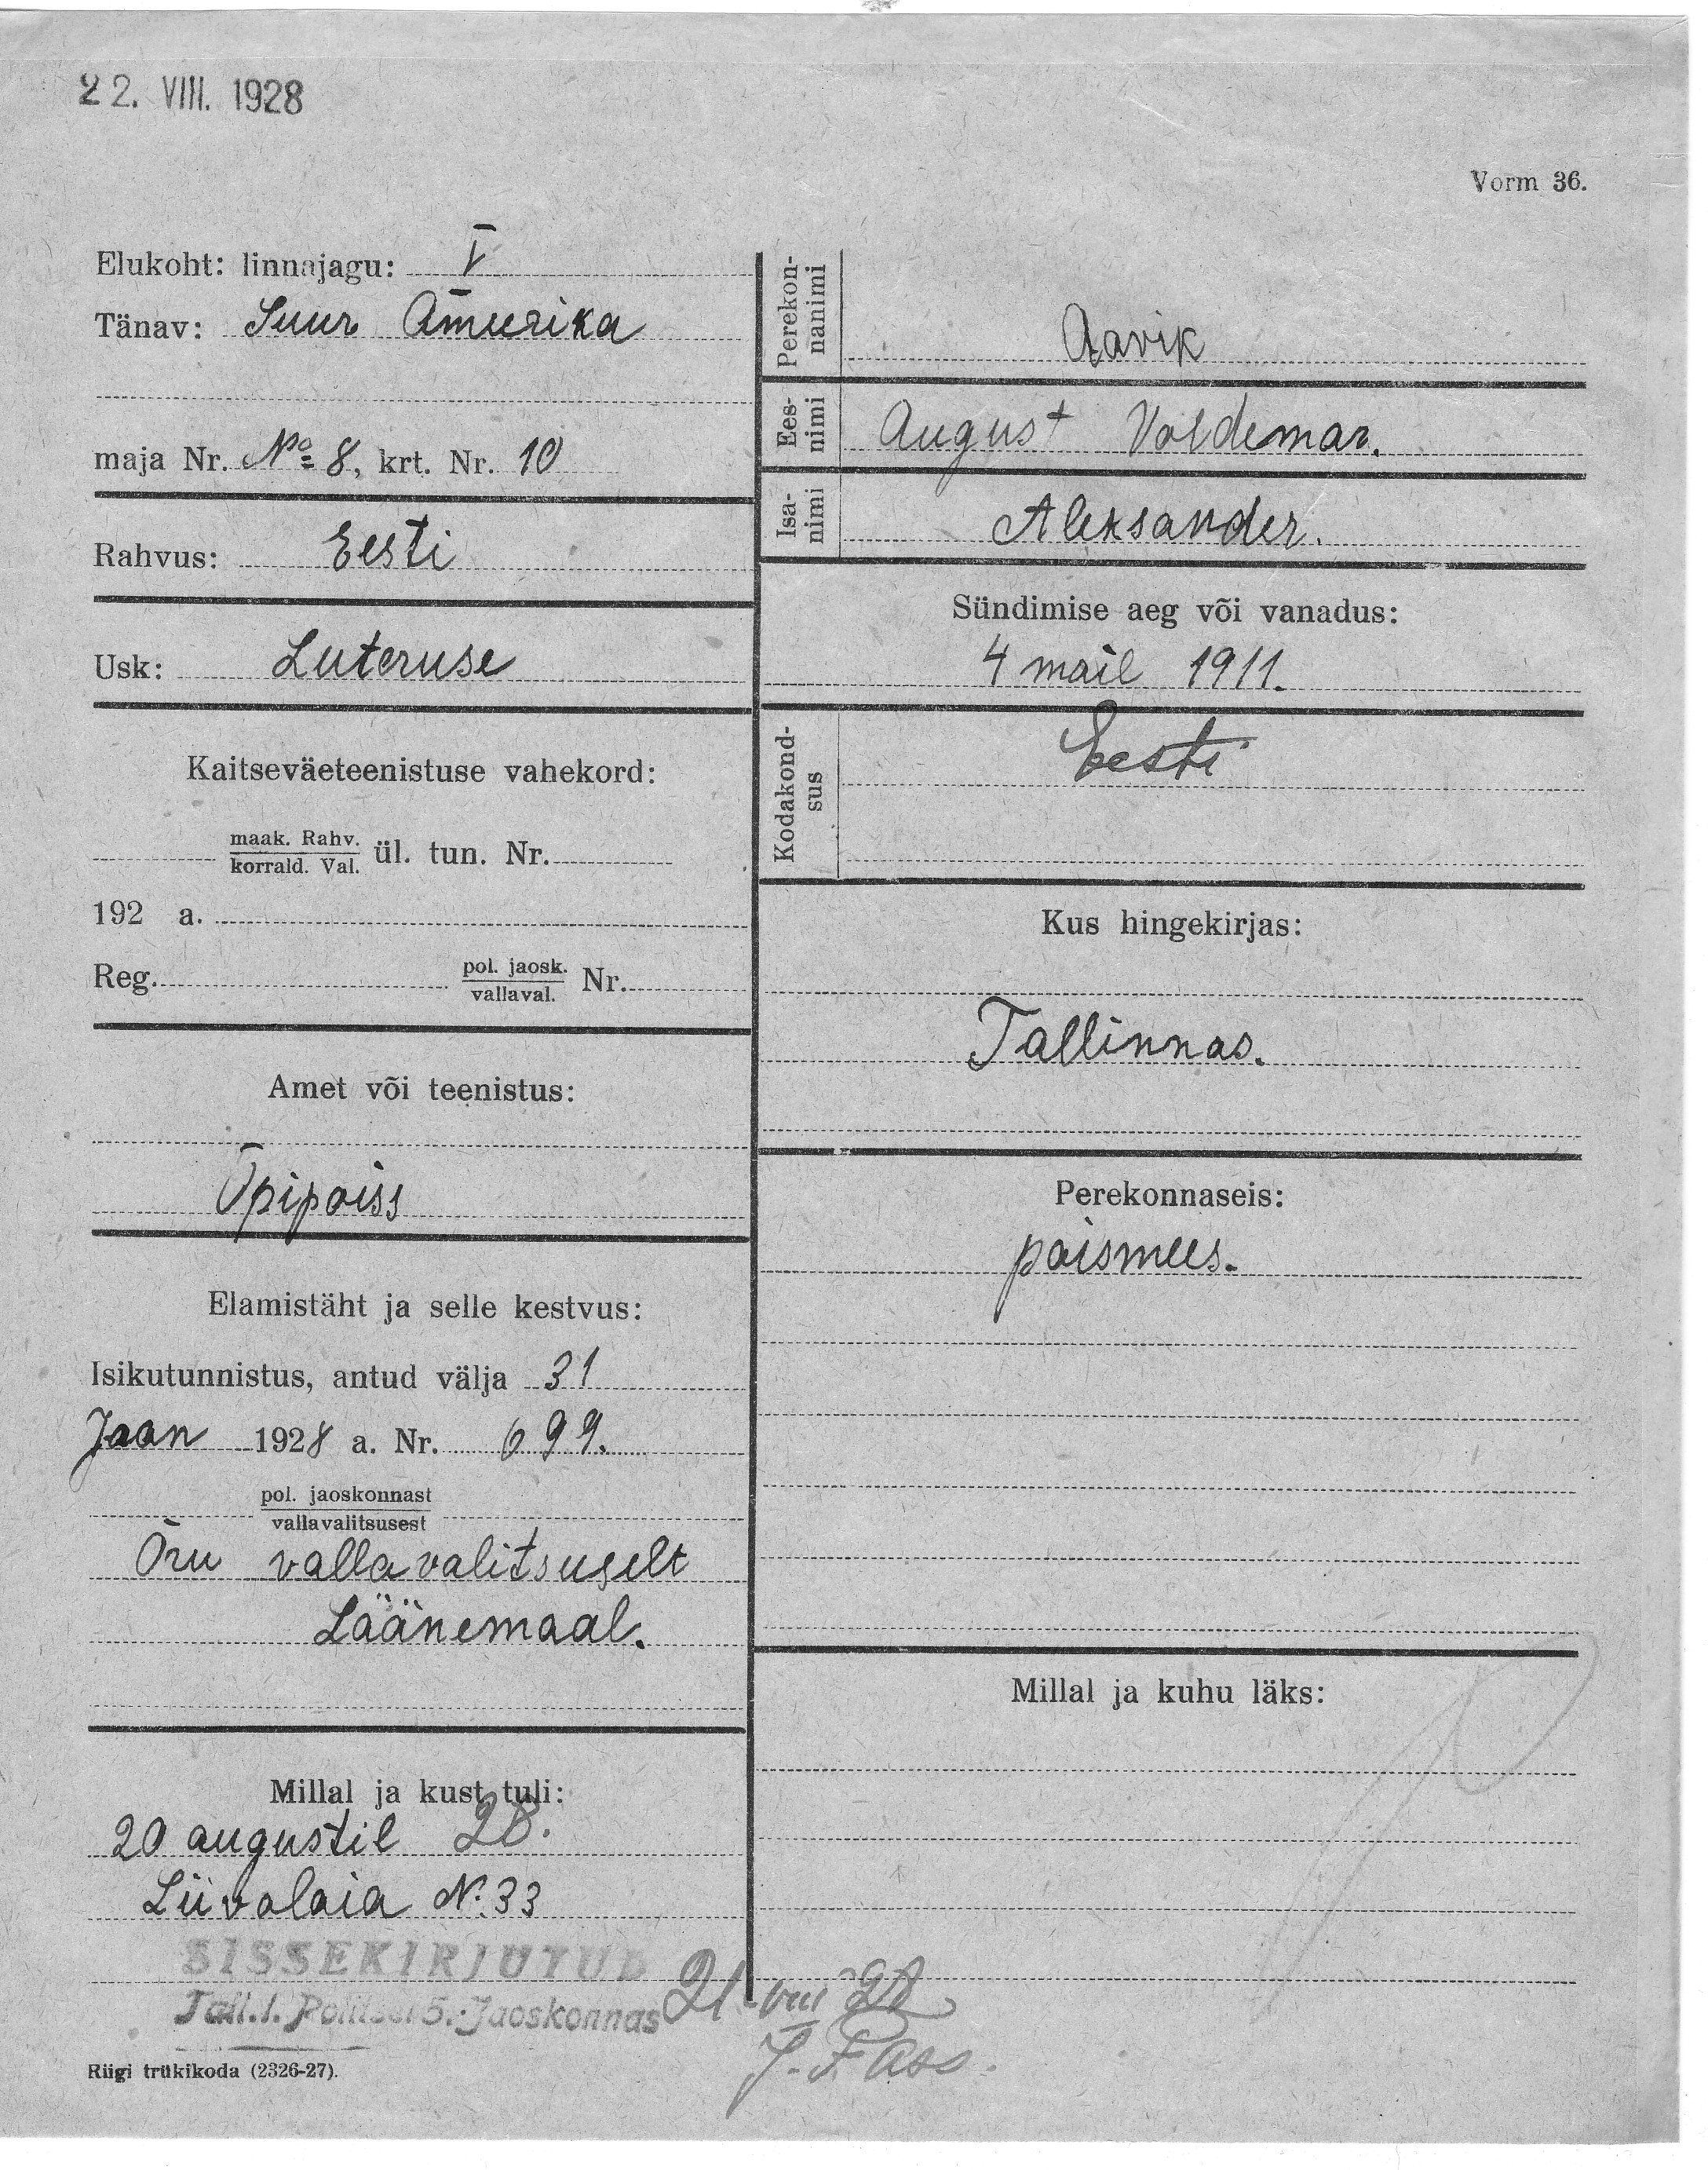 22. VIII. 1928
Vorm 36.
Elukoht: linnajagu: V
Tänav: Suur Ameerika
maja Nr. № 8, krt. Nr. 10
Rahvus: Eesti
Usk: Luteruse
Kaitseväeteenistuse vahekord:
maak. Rahv.
korrald. Val.
ül. tun. Nr.
192 a.
Reg. pol. jaosk. Nr.
vallaval.
Amet või teenistus:
Õpipoiss
Elamistäht ja selle kestvus:
Isikutunnistus, antud välja 31
Jaan 1928 a. Nr. 699.
pol. jaoskonnast
vallavalitsusest
Oru vallavalitsuselt
Läänemaal.
Millal ja kust tuli:
20 augustil 28.
Liivalaia N. 33
SISSEKIRJUTUD
Tall.l. Politsei 5. Jaoskonnas
21-VIII 28
Riigi trükikoda (2326-27).
Perekon-
nanimi
Aavik
Ees-
nimi
August Voldemar.
Isa-
nimi
Aleksander.
Sündimise aeg või vanadus:
4 mail 1911.
Kodakond-
sus
Eesti
Kus hingekirjas:
Tallinnas.
Perekonnaseis:
poismees.
Millal ja kuhu läks: